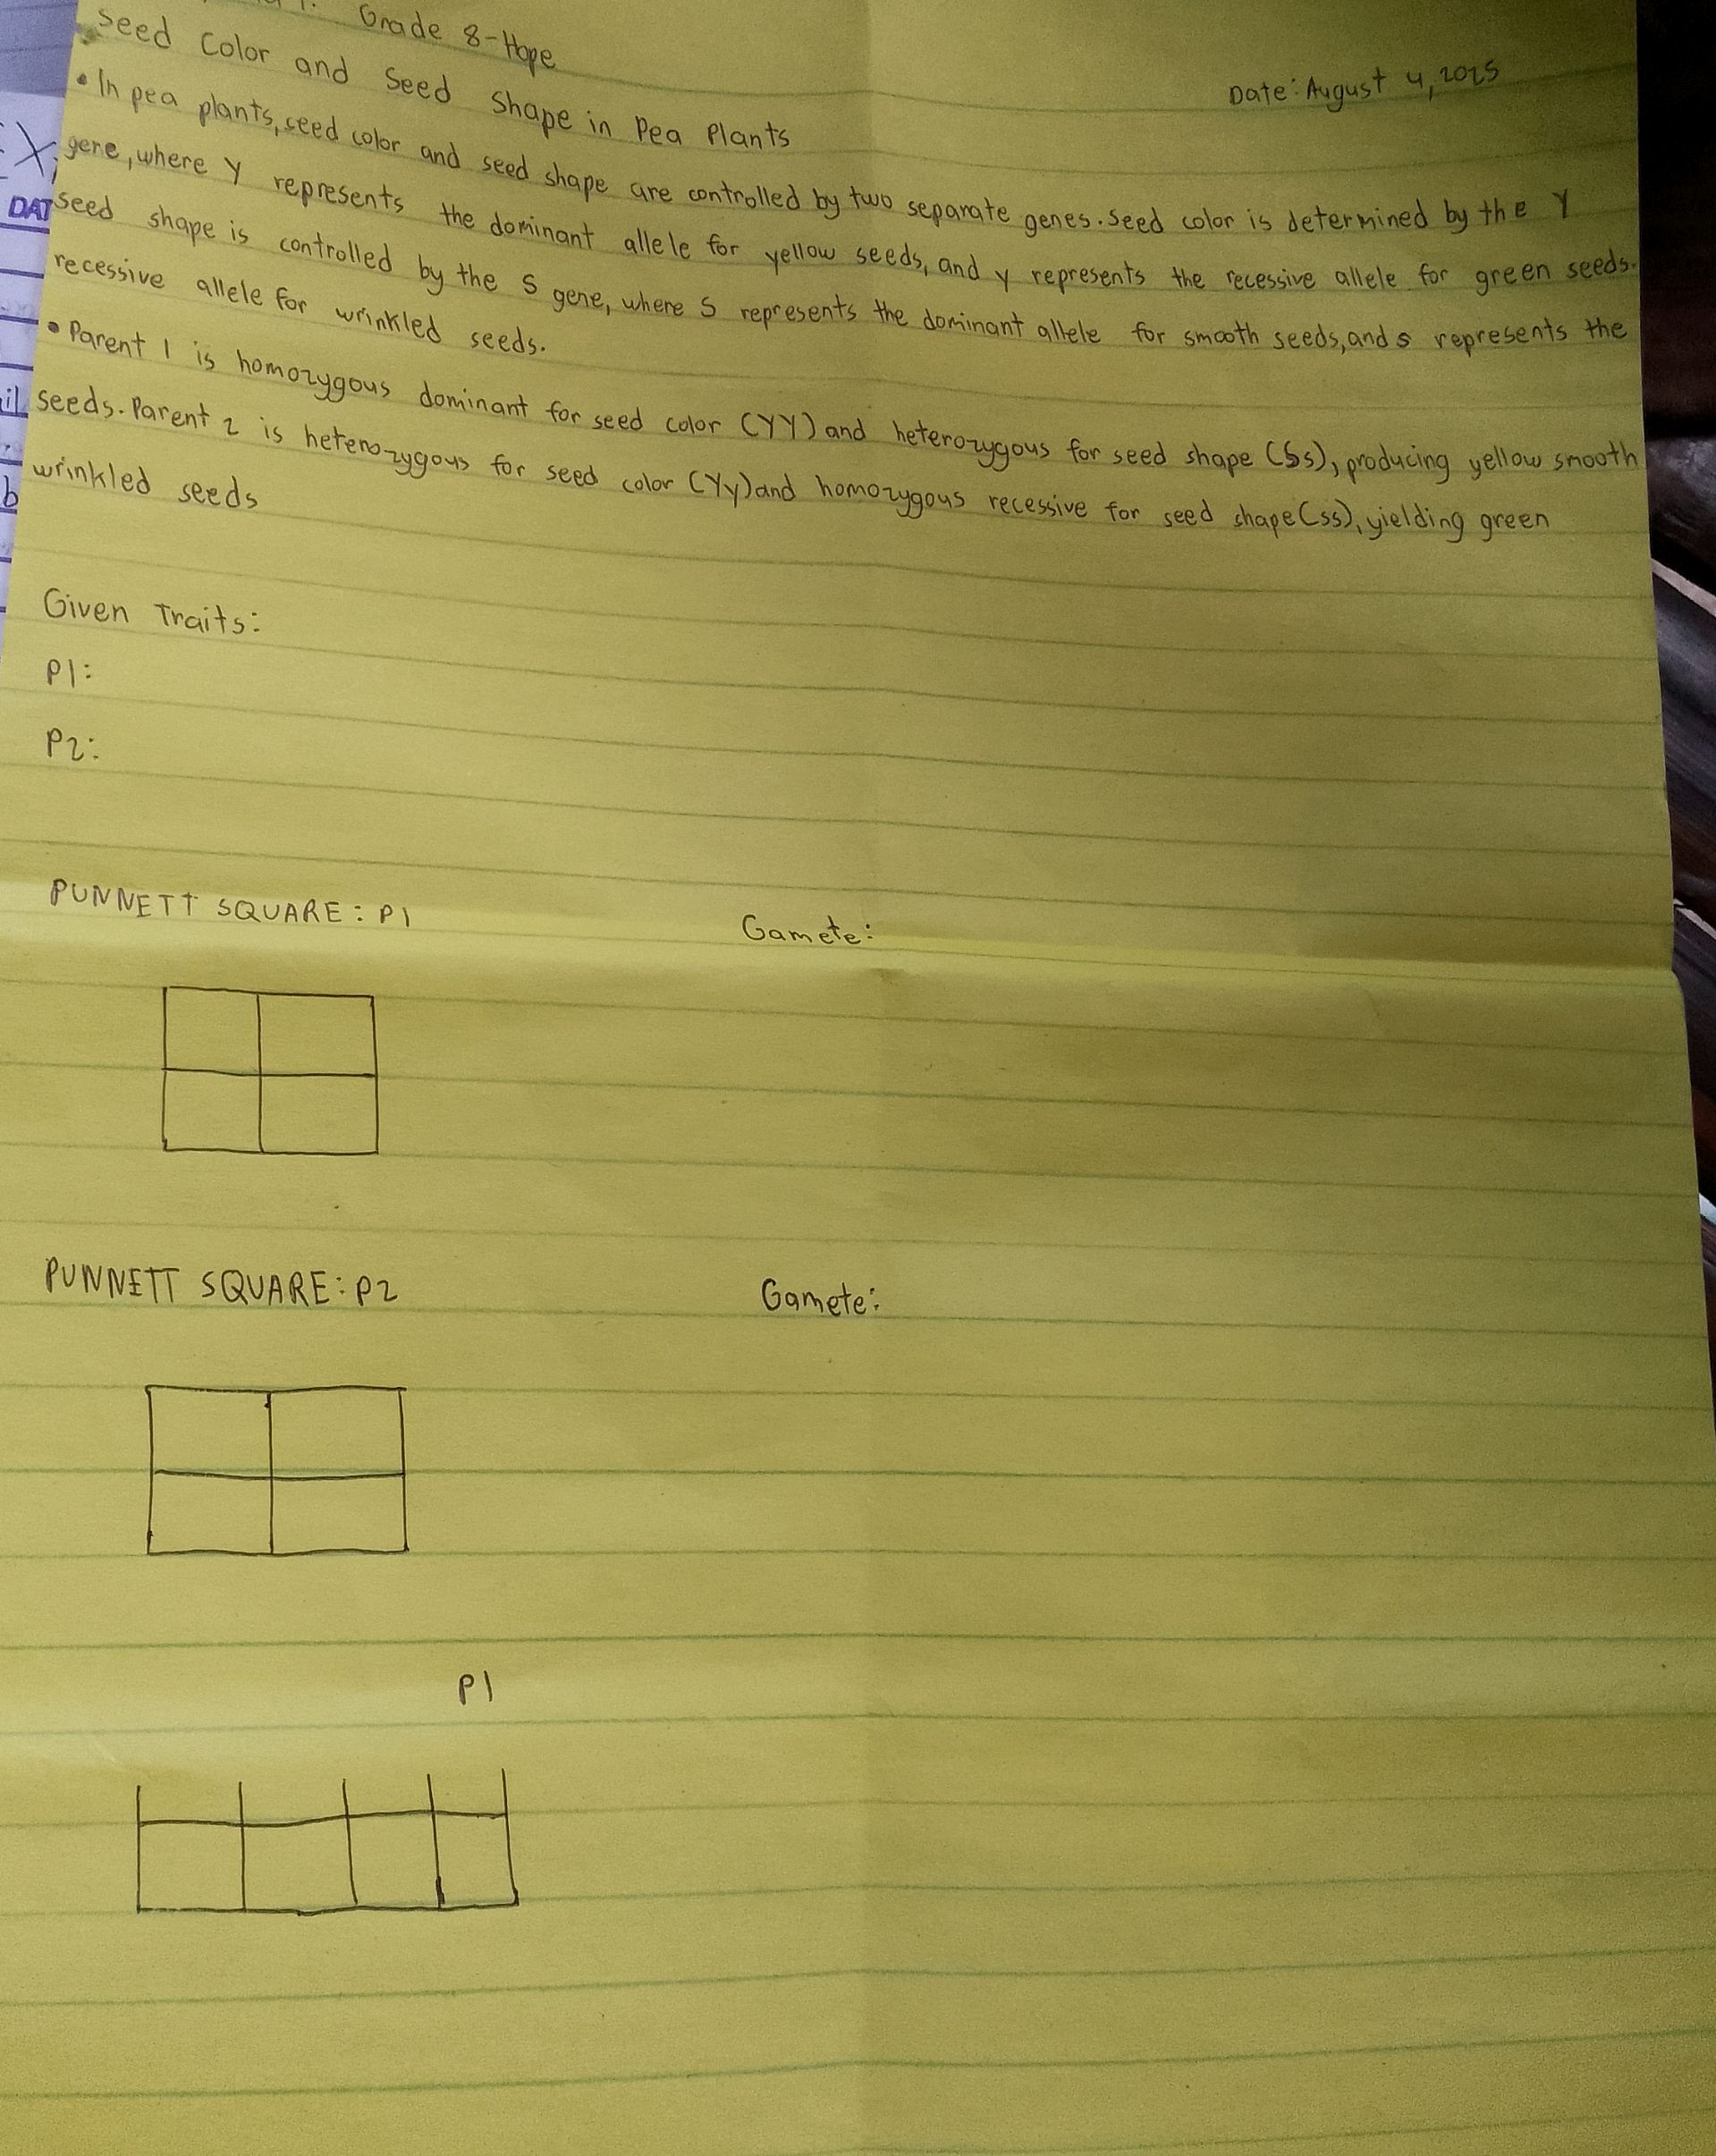 Grade 8-Hope
Date: August 4, 2025
Seed Color and Seed Shape in Pea Plants
• In pea plants, seed color and seed shape are controlled by two separate genes. Seed color is determined by the Y
gene, where Y represents the dominant allele for yellow seeds, and y represents the recessive allele for green seeds.
Seed shape is controlled by the S gene, where S represents the dominant allele for smooth seeds, and s represents the
recessive allele for wrinkled seeds.
• Parent 1 is homozygous dominant for seed color (YY) and heterozygous for seed shape (Ss), producing yellow smooth
seeds. Parent 2 is heterozygous for seed color (Yy) and homozygous recessive for seed shape (ss), yielding green
wrinkled seeds
Given Traits:
P1:
P2:
PUNNETT SQUARE: P1 Gamete:
PUNNETT SQUARE: P2 Gamete:
P1
DAT